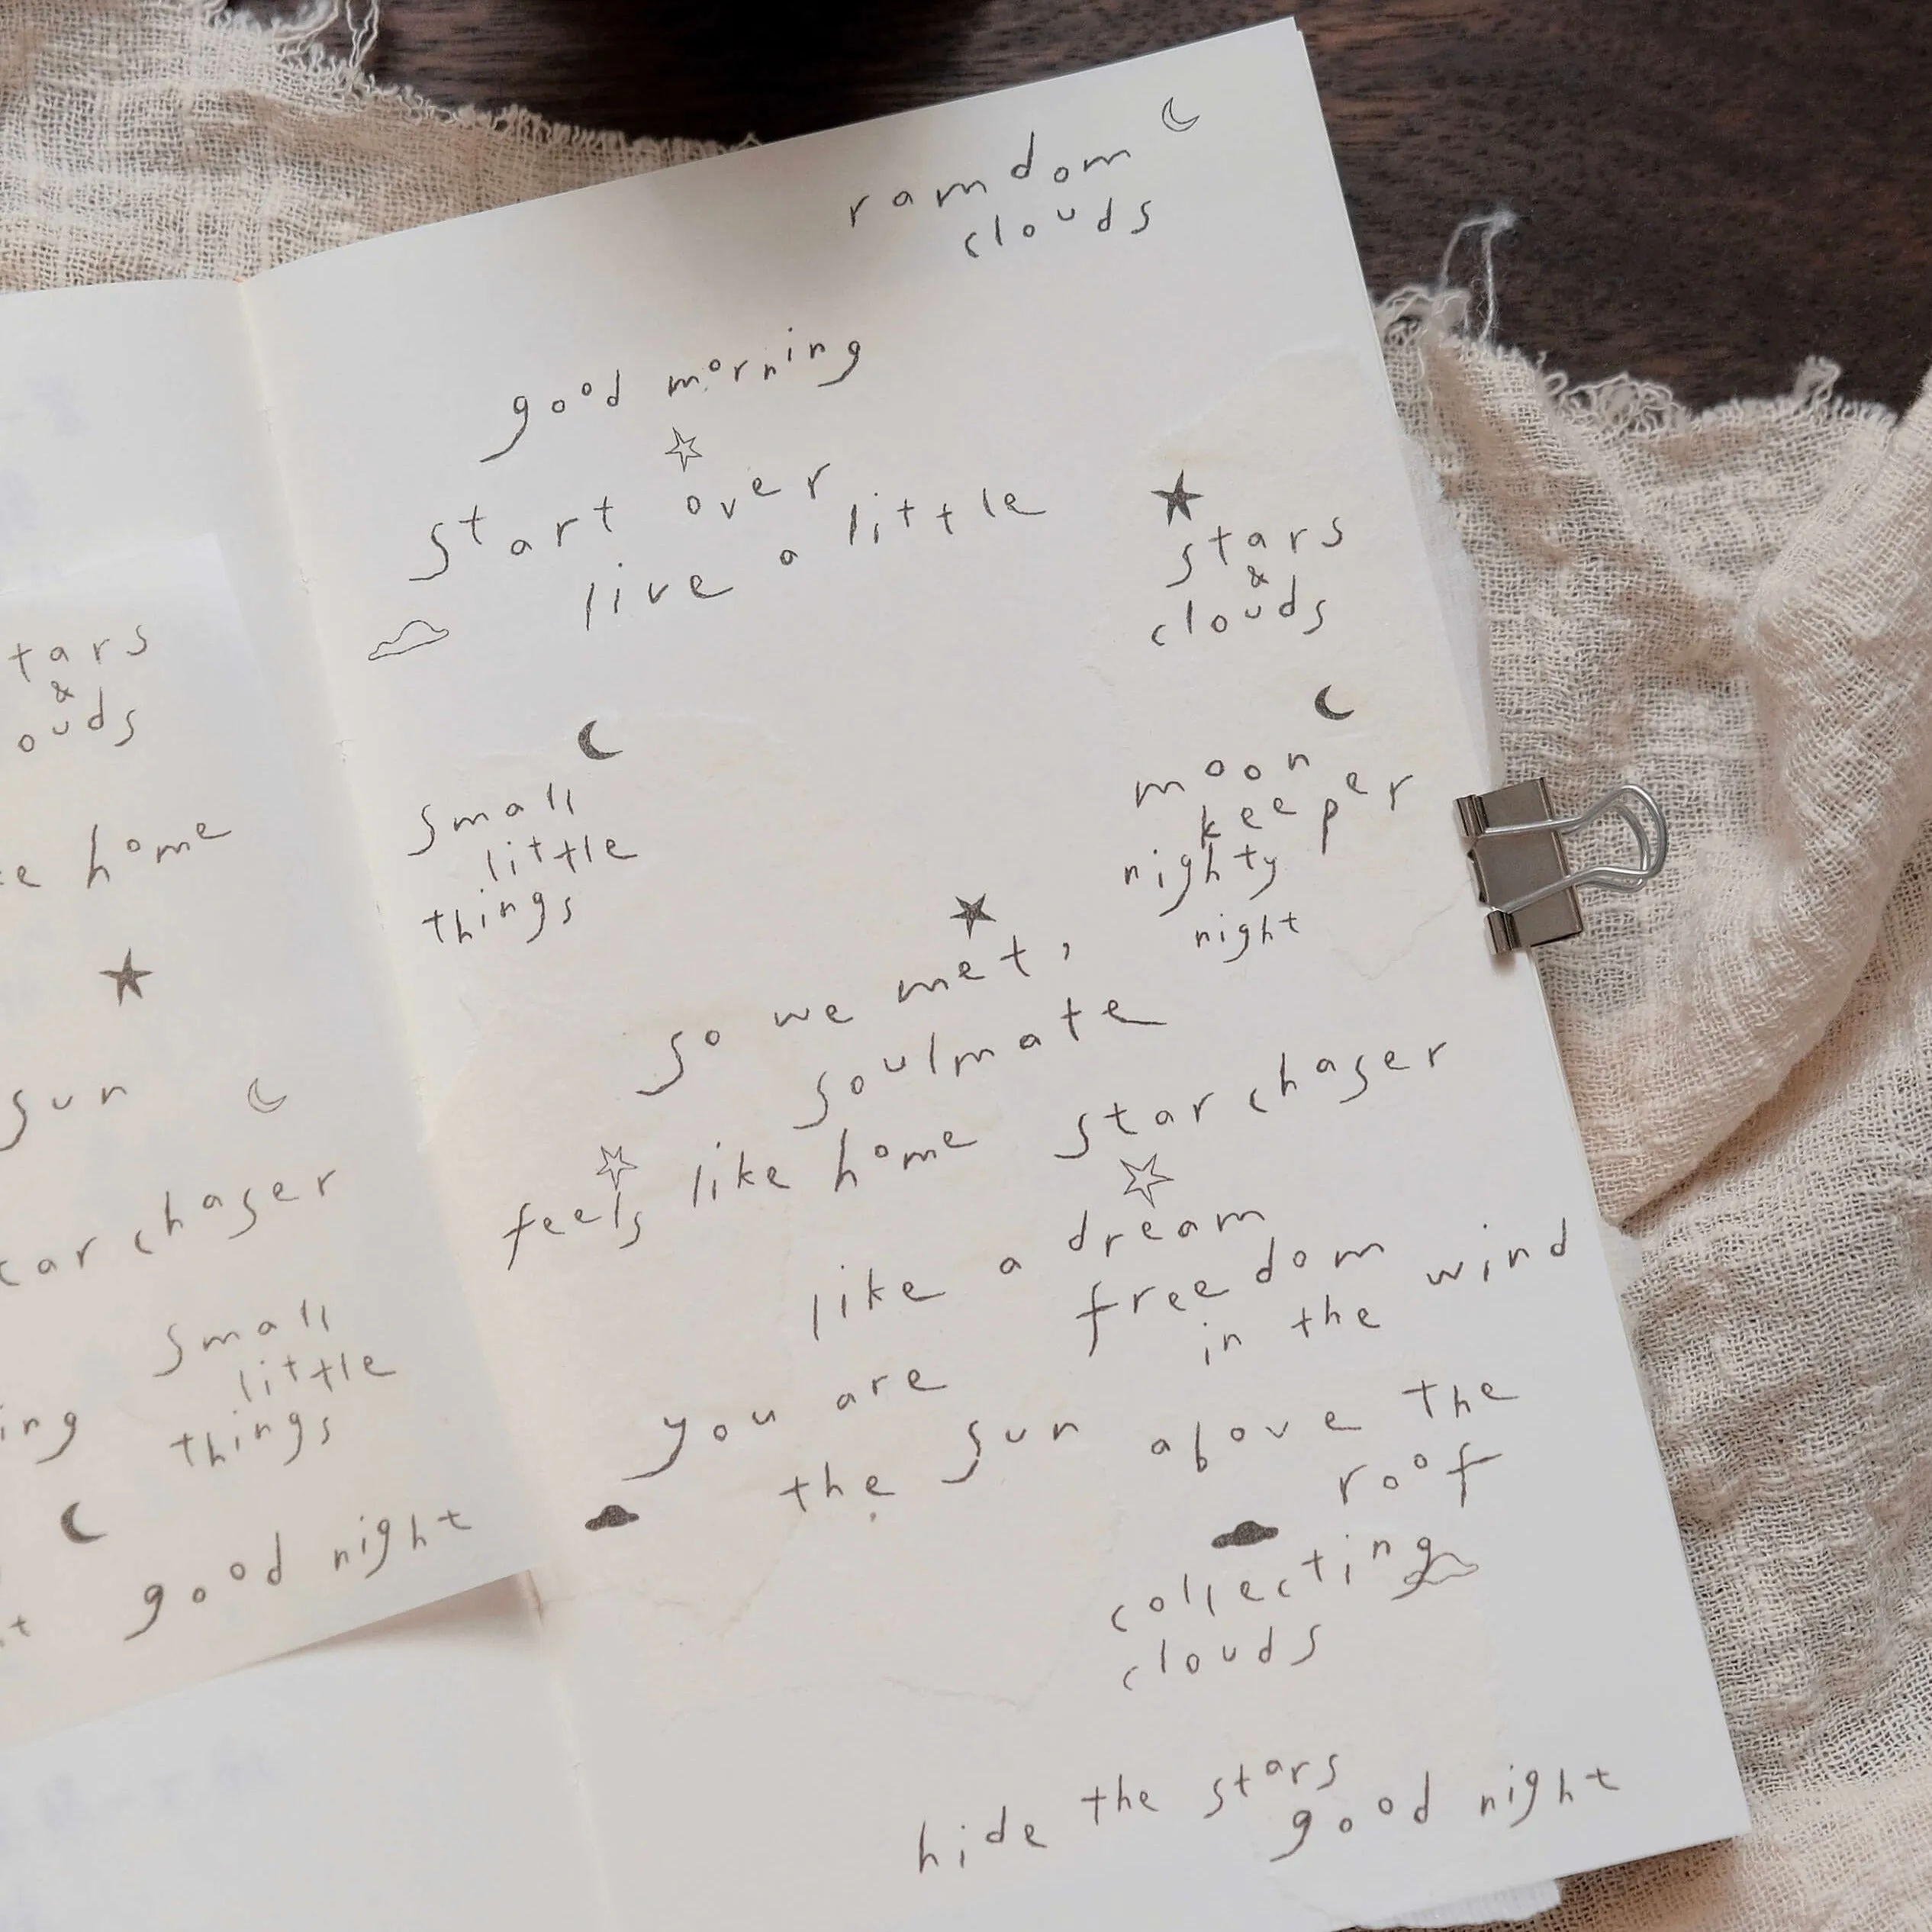 ramdom
clouds
good morning
start over
live a little
stars
&
clouds
small
little
things
moon
keeper
nighty
night
so we met,
soulmate
feels like home
starchaser
like a dream
freedom
in the wind
you are
the sun above the
roof
collecting
clouds
hide the stars
good night
tars
&
ouds
e home
sun
tar chaser
small
little
things
ing
good night